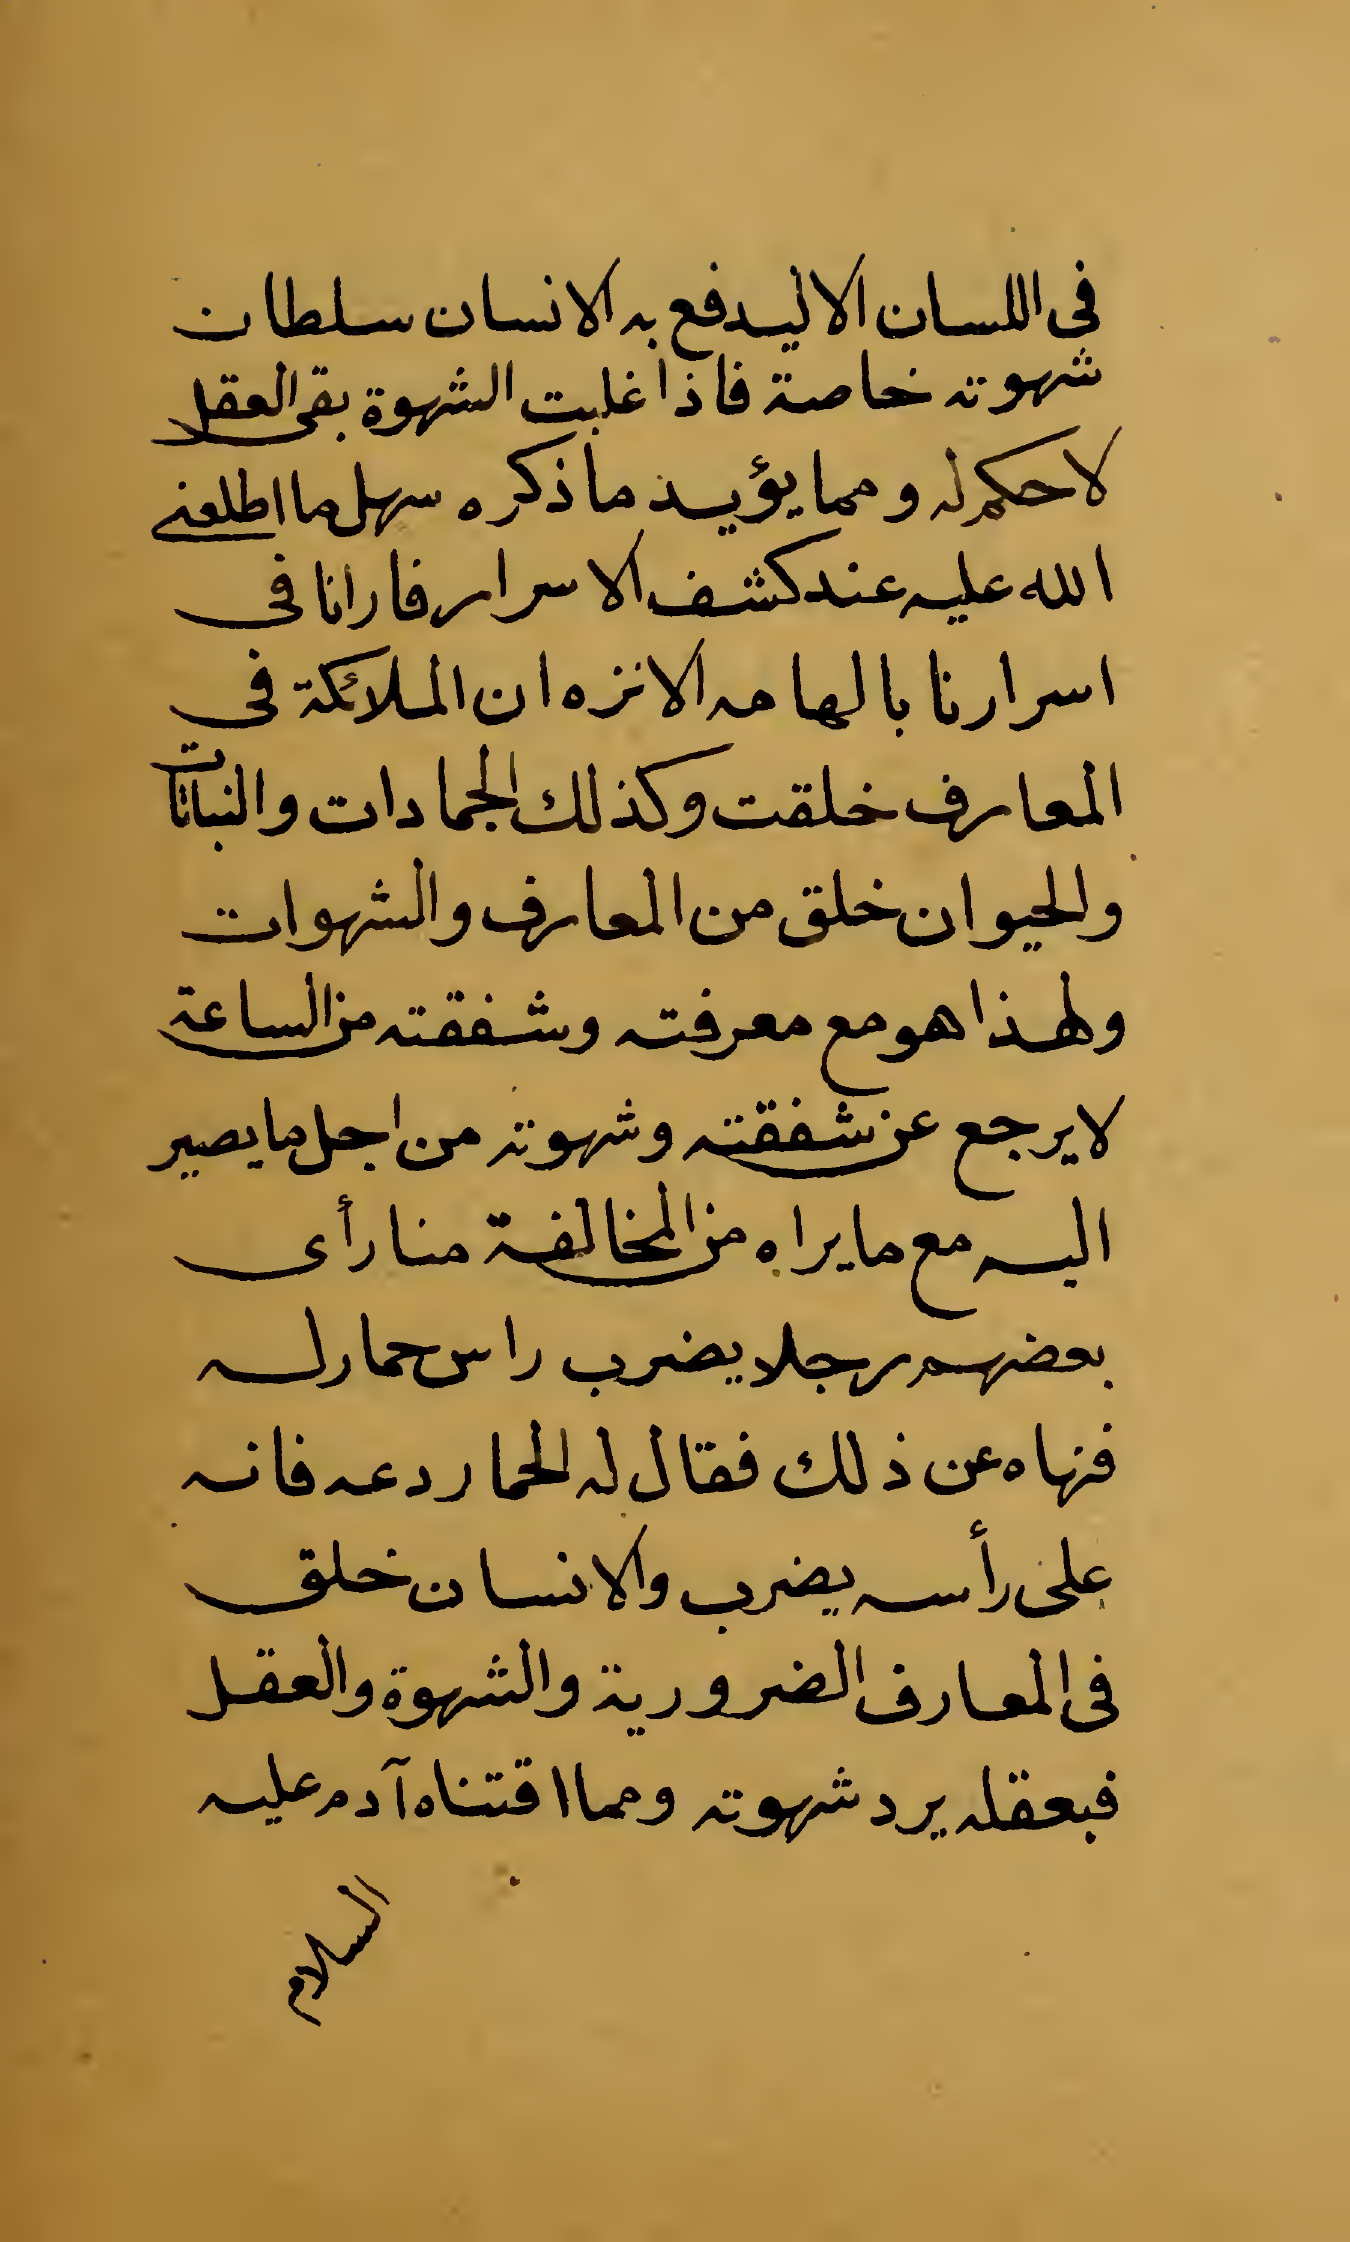 فى اللسان الا ليدفع به الانسان سلطان
شهوته خاصة فاذا غلبت الشهوة بقى العقل
لا حكم له ومما يؤيد ما ذكره سهل ما اطلعنى
الله عليه عند كشف الاسرار فارانا فى
اسرارنا بالهامه الانزه ان الملائكة فى
المعارف خلقت وكذلك الجمادات والنباتات
والحيوان خلق من المعارف والشهوات
ولهذا هو مع معرفته وشفقته من الساعة
لا يرجع عن شفقته وشهوته من اجل ما يصير
اليه مع ما يراه من المخالفة منا رأى
بعضهم رجلا يضرب راس حمار له
فنهاه عن ذلك فقال له الحمار دعه فانه
على رأسه يضرب والانسان خلق
فى المعارف الضرورية والشهوة والعقل
فبعقله يرد شهوته ومما اقتناه آدم عليه
السلام